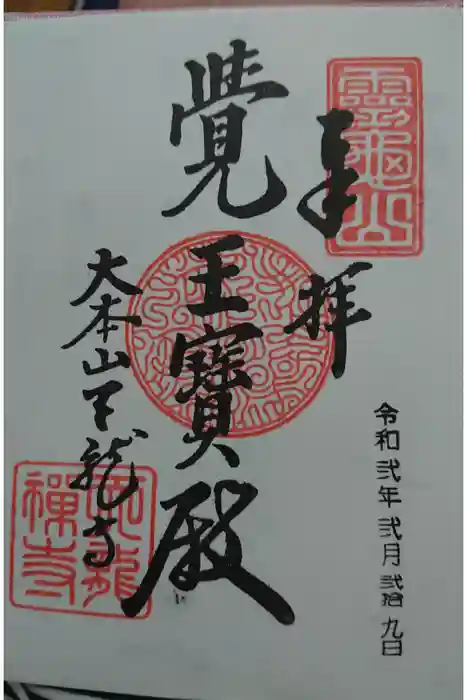 奉拝
靈龜山
令和弐年弐月弐拾九日
覺王寶殿
大本山天龍寺
天龍禅寺